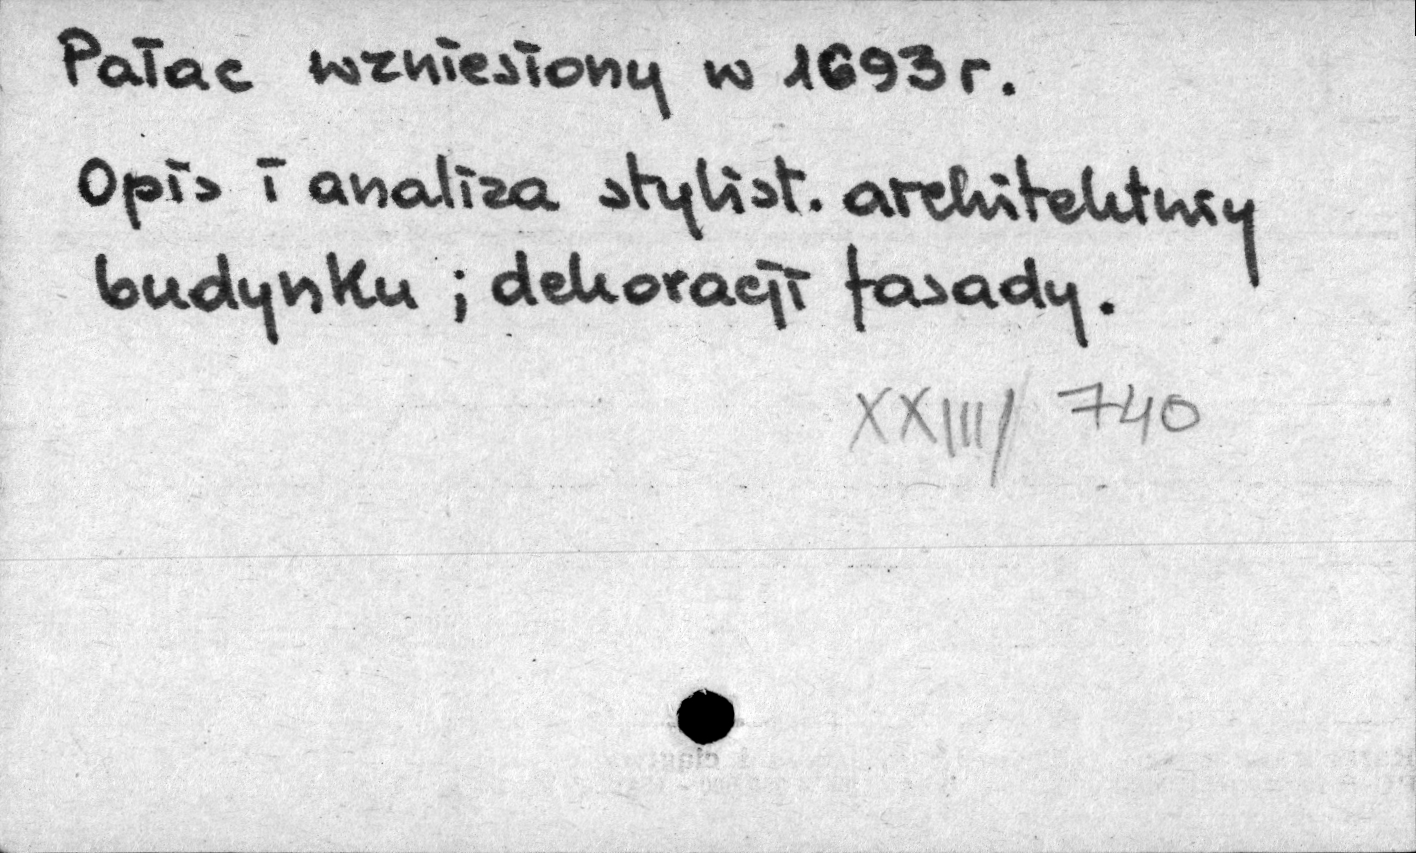 Pałac wzniesiony w 1693 r.
Opis i analiza stylist. architektury
budynku ; dekoracji fasady.
XXIII/ 740